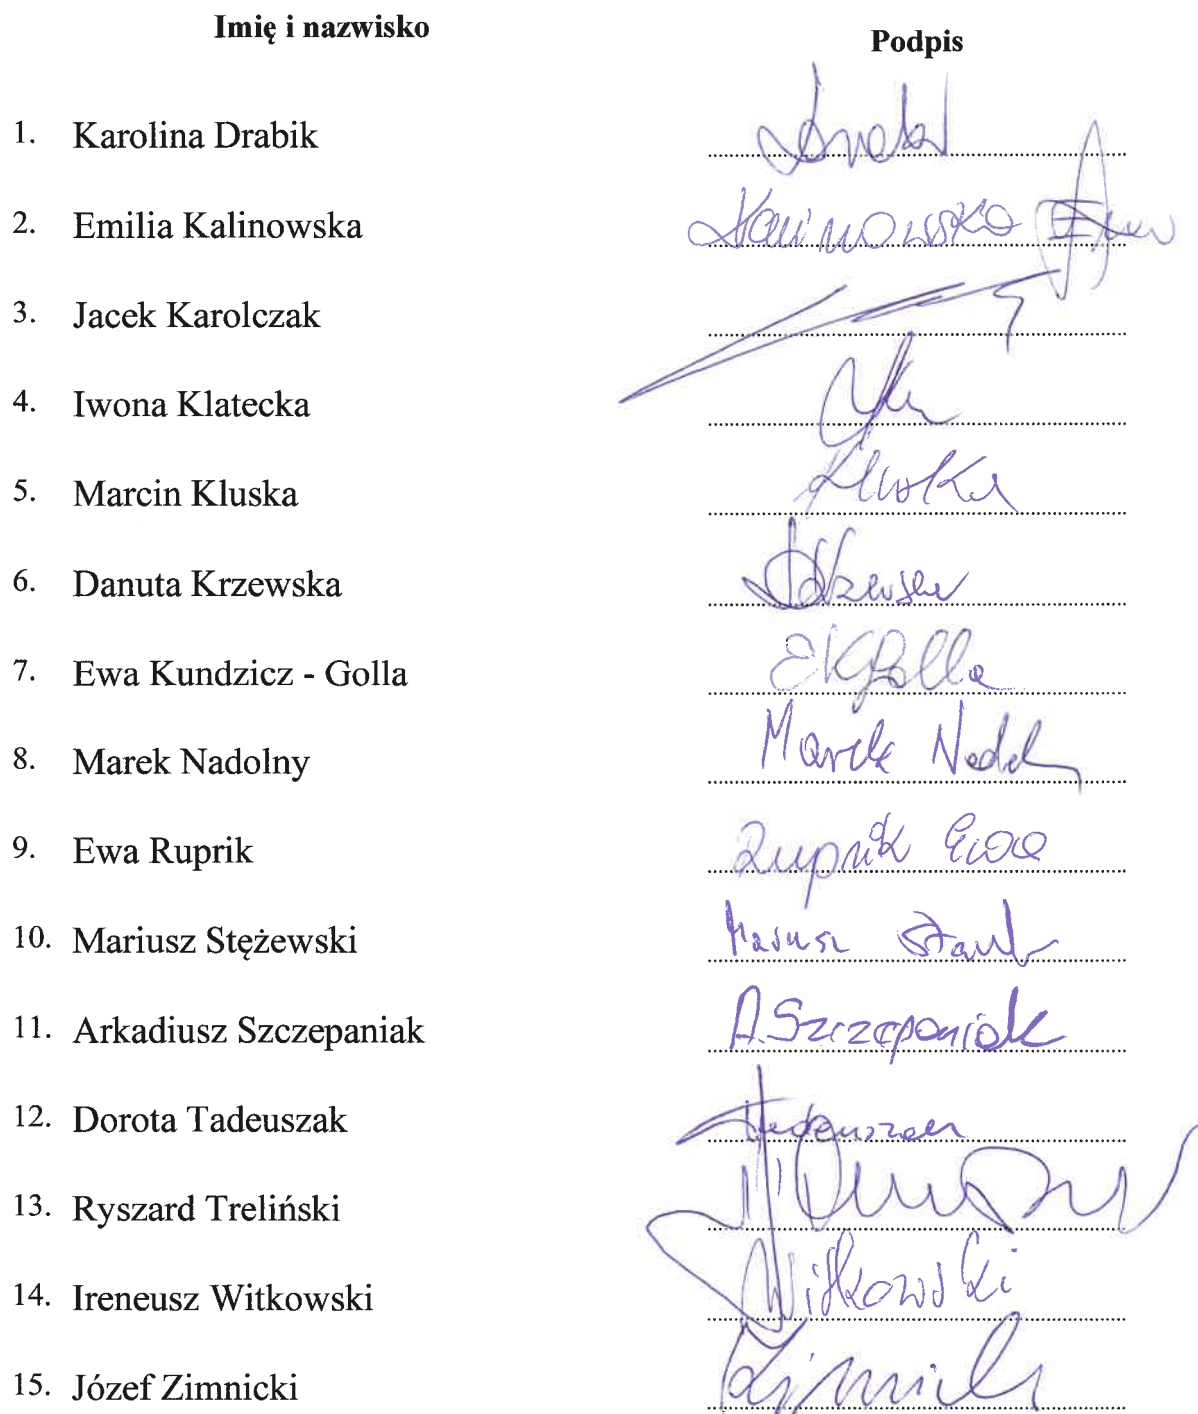 Imię i nazwisko Podpis
1. Karolina Drabik
2. Emilia Kalinowska Kalinowska
3. Jacek Karolczak
4. Iwona Klatecka
5. Marcin Kluska Kluska
6. Danuta Krzewska
7. Ewa Kundzicz - Golla EKGolla
8. Marek Nadolny Marek
9. Ewa Ruprik Ruprik Ewa
10. Mariusz Stężewski Mariusz
11. Arkadiusz Szczepaniak A.Szczepaniak
12. Dorota Tadeuszak Tadeuszak
13. Ryszard Treliński
14. Ireneusz Witkowski Witkowski
15. Józef Zimnicki